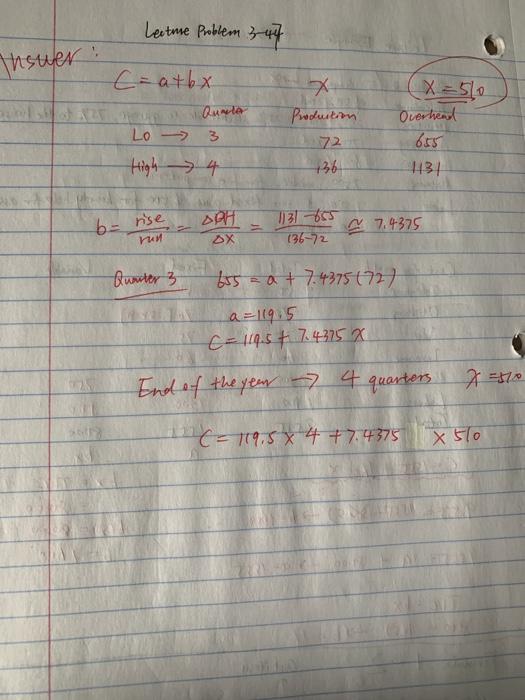 Lecture Problem 3-47
Answer:
C = a + bx    X    X = 510
Quarter    Production    Overhead
Lo → 3    72    655
High → 4    136    1131
b = rise/run = ΔOH/ΔX = 1131-655/136-72 ≅ 7.4375
Quarter 3    655 = a + 7.4375(72)
a = 119.5
C = 119.5 + 7.4375 X
End of the year → 4 quarters    X = 510
C = 119.5 × 4 + 7.4375    × 510